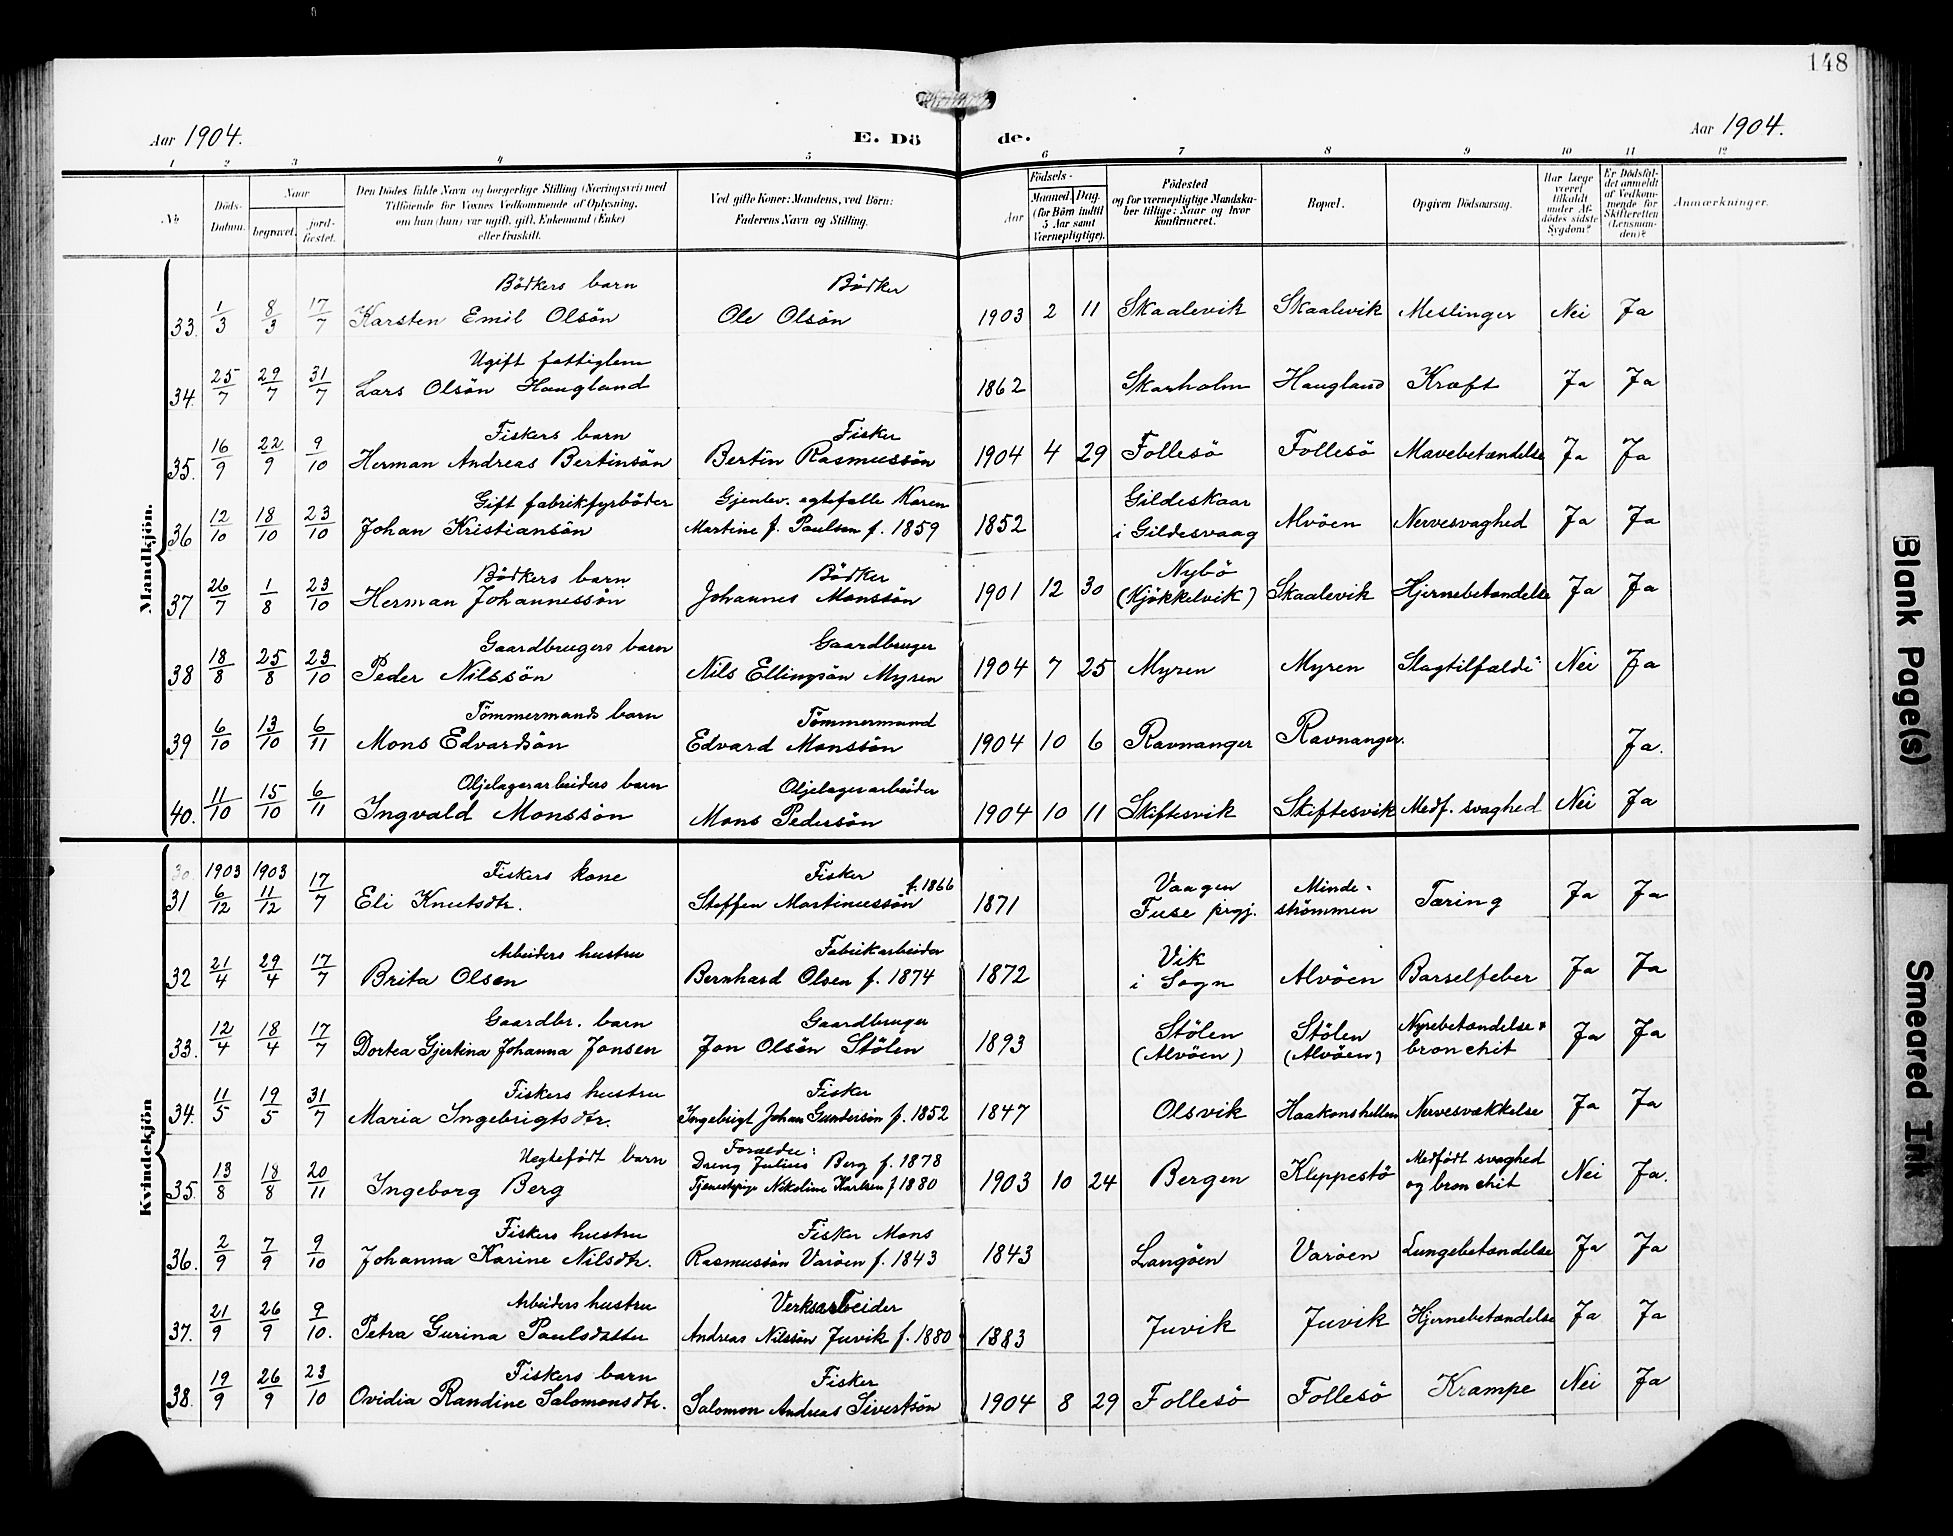 148
Aar 1904.
E. Dö de.
Aar 1904.
1 2 3 4 5 6 7 8 9 10 11 12
No. Döds-Datum. Naar begravet. jord-fæstet. Den Dödes fulde Navn og borgerlige Stilling (Næringsvei) med Tilföiende for Voxnes Vedkommende af Oplysning, om han (hun) var ugift, gift, Enkemand (Enke) eller fraskilt. Ved gifte Koner: Mandens, ved Börn: Faderens Navn og Stilling. Födsels- Aar Maaned. Dag. (for Börn indtil 5 Aar samt Værnepligtige). Födested og for værnepligtige Mandskaber tillige: Naar og hvor konfirmeret. Bopæl. Opgiven Dödsaarsag. Har Læge været tilkaldt under Afdödes sidste Sygdom? Er Dödsfaldet anmeldt af Vedkommende for Skifteretten (Lensmanden)? Anmærkninger.
Mandkjön.
Bödkers barn Bödker
33. 1/3 8/3 17/7 Karsten Emil Olsön Ole Olsön 1903 2 11 Skaalevik Skaalevik Meslinger Nei Ja
Ugift fattiglem
34. 25/7 29/7 31/7 Lars Olsön Haugland 1862 Skarholm Haugland Kræft Ja Ja
Fiskers barn Fisker
35. 16/9 22/9 9/10 Herman Andreas Bertinsön Bertin Rasmussön 1904 4 29 Follesö Follesö Mavebetændelse Ja Ja
Gift fabrikfyrböder Gjenlev. egtefælle Karen Gildeskaar
36 12/10 18/10 23/10 Johan Kristiansön Martine f. Paulsen f. 1859 1852 i Gildesvaag Alvöen Nervesvaghed Ja Ja
Bödkers barn Bödker Nybö
37 26/7 1/8 23/10 Herman Johannessön Johannes Monssön 1901 12 30 (Kjökkelvik) Skaalevik Hjernebetændelse Ja Ja
Gaardbrugers barn Gaardbruger
38 18/8 25/8 23/10 Peder Nilssön Nils Ellingsön Myren 1904 7 25 Myren Myren Slagtilfælde Nei Ja
Tömmermands barn Tömmermand
39 6/10 13/10 6/11 Mons Edvardsön Edvard Monssön 1904 10 6 Ravnanger Ravnanger. Ja.
Oljelagerarbeiders barn Oljelagerarbeider
40. 11/10 15/10 6/11 Ingvald Monssön Mons Pedersön 1904 10 11 Skiftesvik Skiftesvik Medf. svaghed Nei Ja
Kvindekjön
30 1903 1903 Fiskers kone Fisker f. 1866 Vaagen Minde-
31 6/12 11/12 17/7 Eli Knutsdtr. Steffen Martinussön 1871 Fuse prgj. strömmen Tæring Ja Ja
Arbeiders hustru Fabrikarbeider Vik
32 21/4 29/4 17/7 Brita Olsen Bernhard Olsen f. 1874 1872 i Sogn Alvöen Barselfeber Ja Ja
Gaardbr. barn Gaardbruger Stölen Stölen Nyrebetændelse +
33. 12/4 18/4 17/7 Dortea Gjertina Johanna Jonsen Jon Olsön Stölen 1893 (Alvöen) (Alvöen) bronchit Ja Ja
Fiskers hustru Fisker
34. 11/5 19/5 31/7 Maria Ingebrigtsdtr. Ingebrigt Johan Gundersön f. 1852 1847 Olsvik Haakonshellen Nervesvækkelse Ja Ja
Uegtefödt barn Forældre: Dreng Julius Berg f. 1878 Medfödt svaghed
35. 13/8 18/8 20/11 Ingeborg Berg Tjenestepige Nikoline Karlsen f 1880 1903 10 24 Bergen Kleppestö og bronchit Nei Ja.
Fiskers hustru Fisker Mons
36. 2/9 7/9 9/10 Johanna Karine Nilsdtr. Rasmussön Varöen f. 1843 1843 Langöen Varöen Lungebetændelse Ja Ja
Arbeiders hustru Verksarbeider
37. 21/9 26/9 9/10. Petra Gurina Paulsdatter Andreas Nilssön Juvik f. 1880 1883 Juvik Juvik Hjernebetændelse Ja Ja
Fiskers barn Fisker
38. 19/9 26/9 23/10 Ovidia Randine Salomonsdtr. Salomon Andreas Sivertsön 1904 8 29 Follesö Follesö Krampe Nei Ja
Blank Page(s)
Smeared Ink